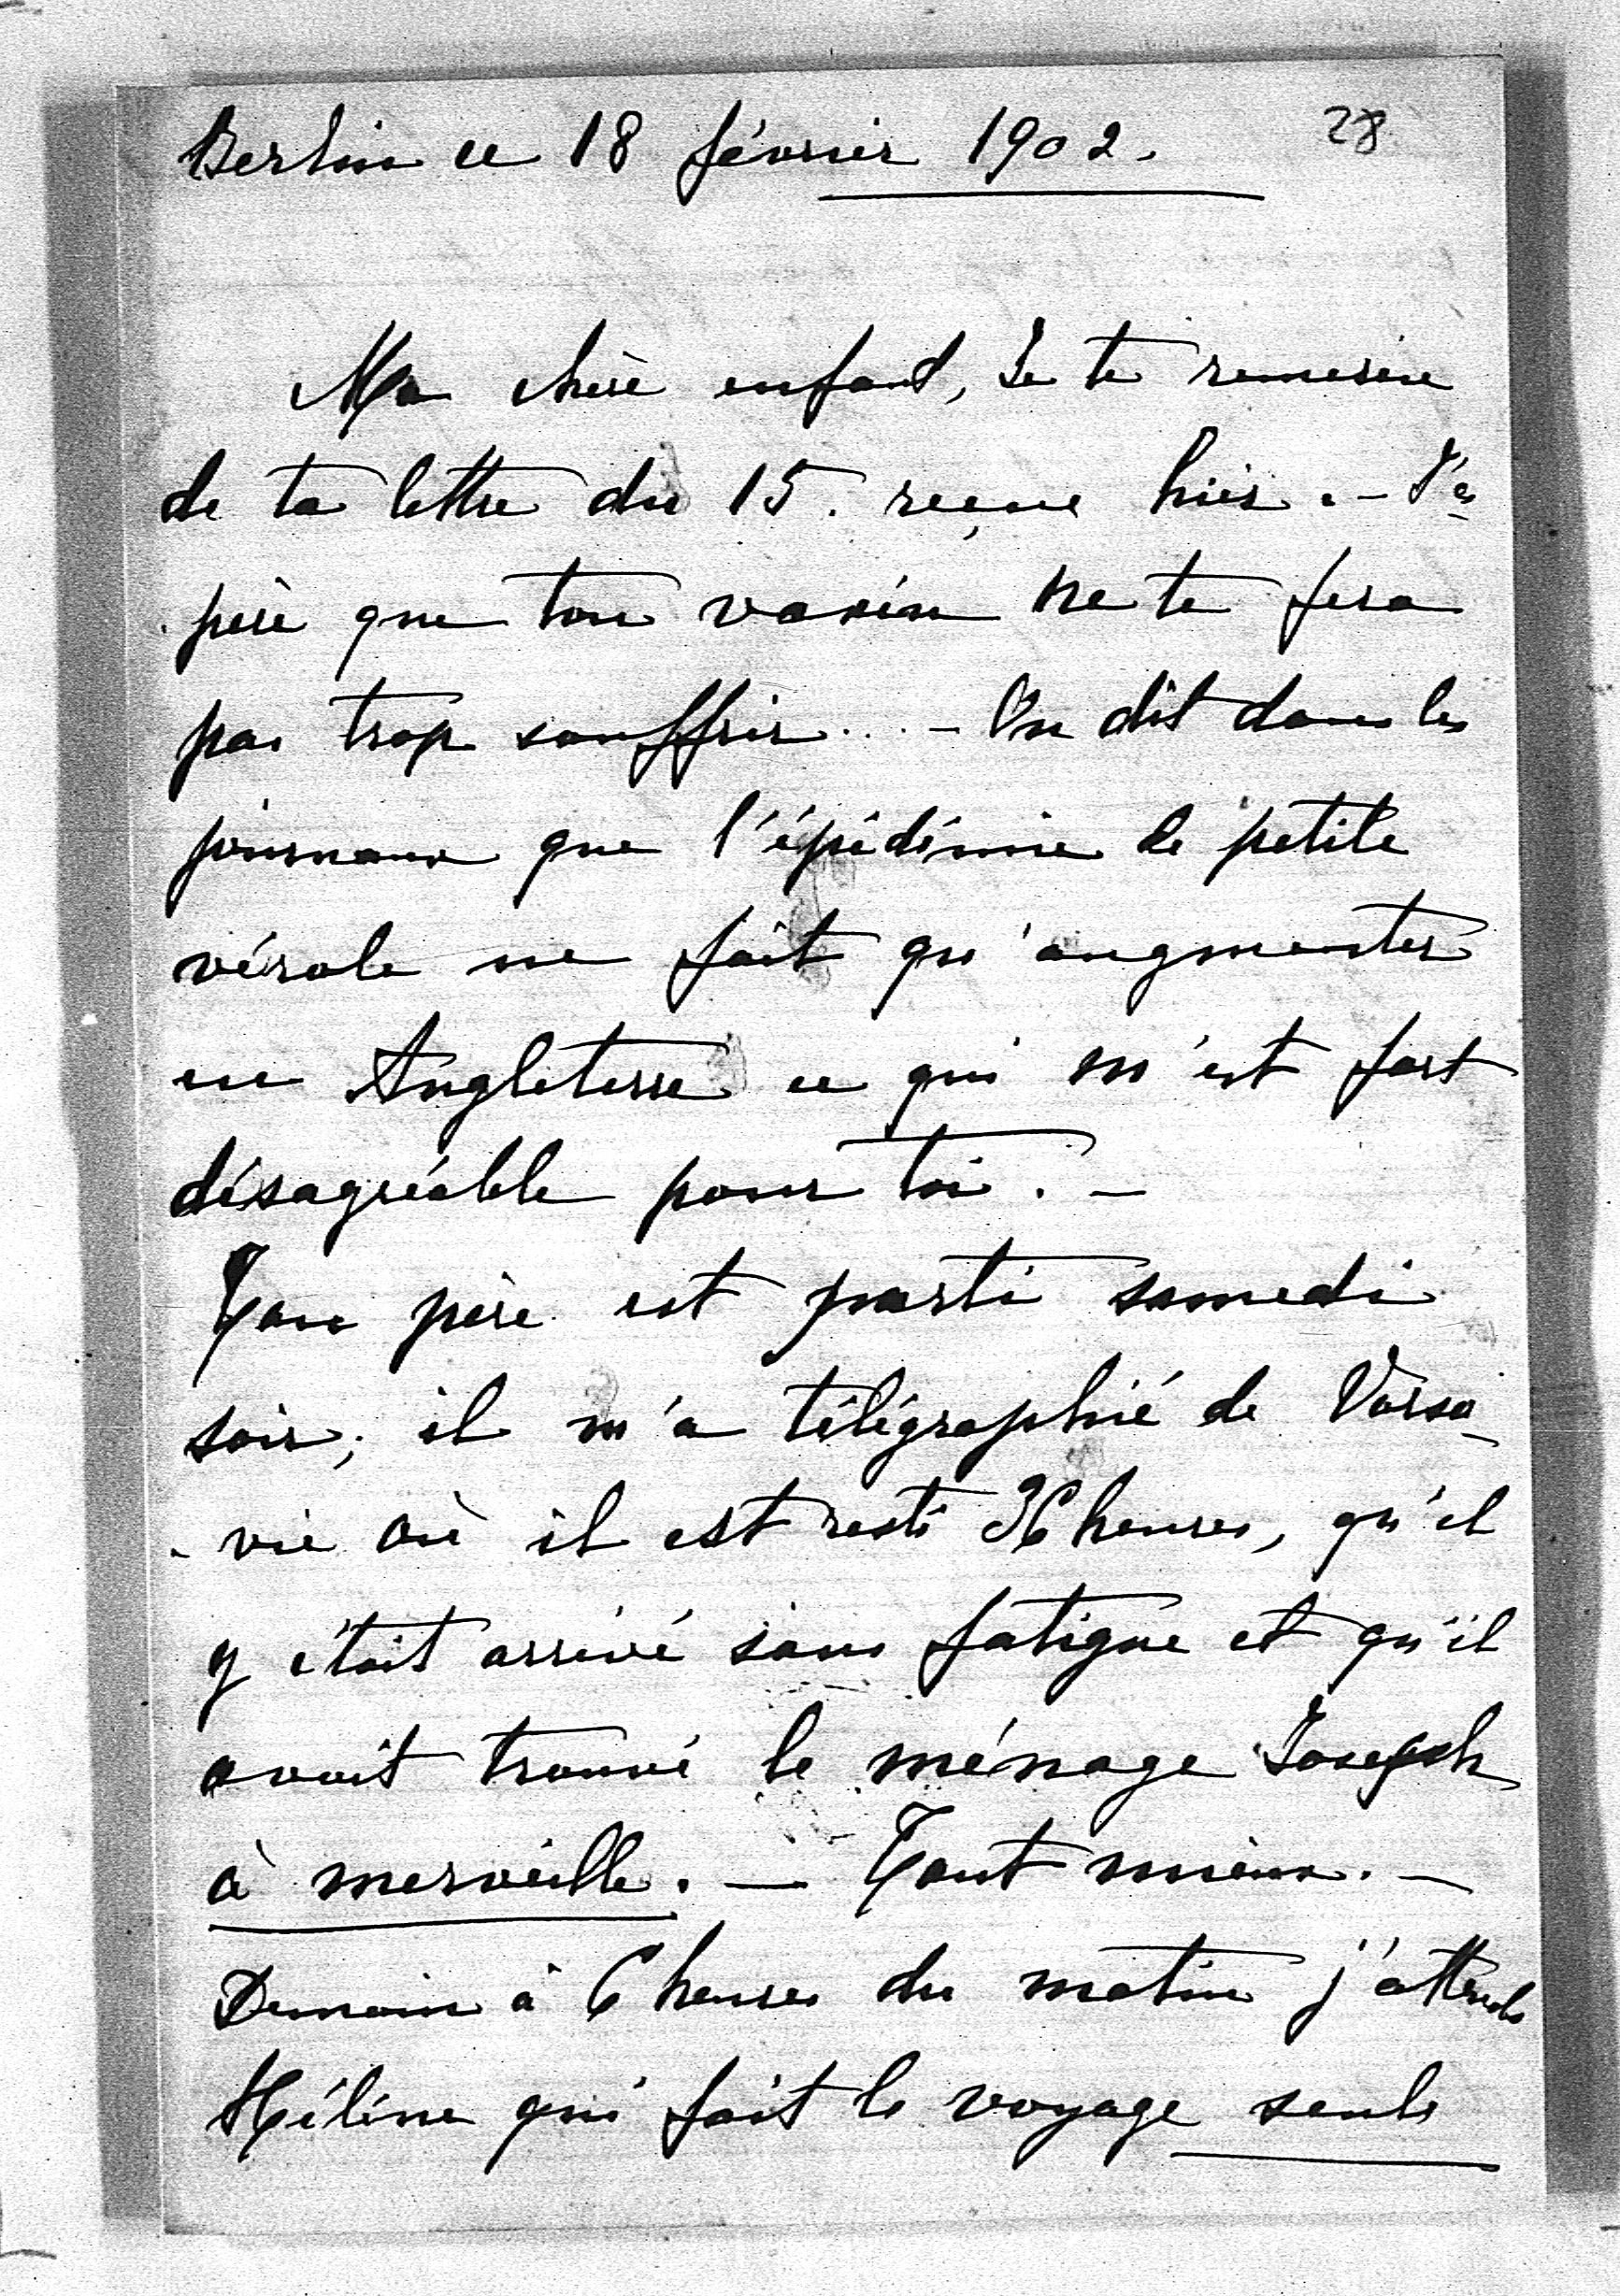 Berlin ce 18 février 1902. 28
Ma chère enfant, Je te remercie
de ta lettre du 15. reçue hier. - J'es
père que ton vaxin ne te fera
pas trop souffrir... - On dit dans les
journaux que l'épidémie de petite
vérole ne fait qu'augmenter
en Angleterre ce qui m'est fort
désagréable pour toi. -
Ton père est parti samedi
soir; il m'a télégraphié de Varso-
- vie où il est resté 36 heures, qu'il
y était arrivé sans fatigue et qu'il
avait trouvé le ménage Joseph
à merveille. — Tant mieux. -
Demain à 6 heures du matin j'attends
Hélène qui fait le voyage seule